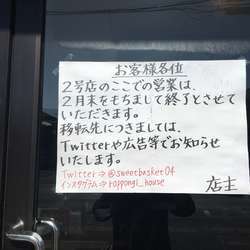 お客様各位
２号店のここでの営業は、
２月末をもちまして終了とさせて
いただきます。
移転先につきましては、
Twitterや広告等でお知らせ
いたします。
Twitter⇒@sweetbasket04
インスタグラム⇒roppongi_house
店主